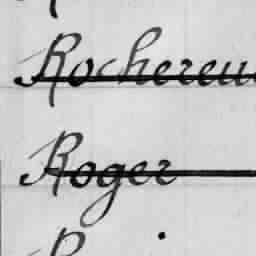 Rochereu
Roger